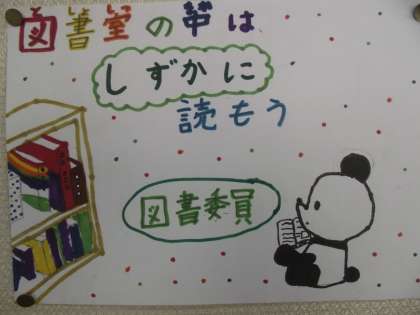 図書室の中は
しずかに
読もう
図書委員